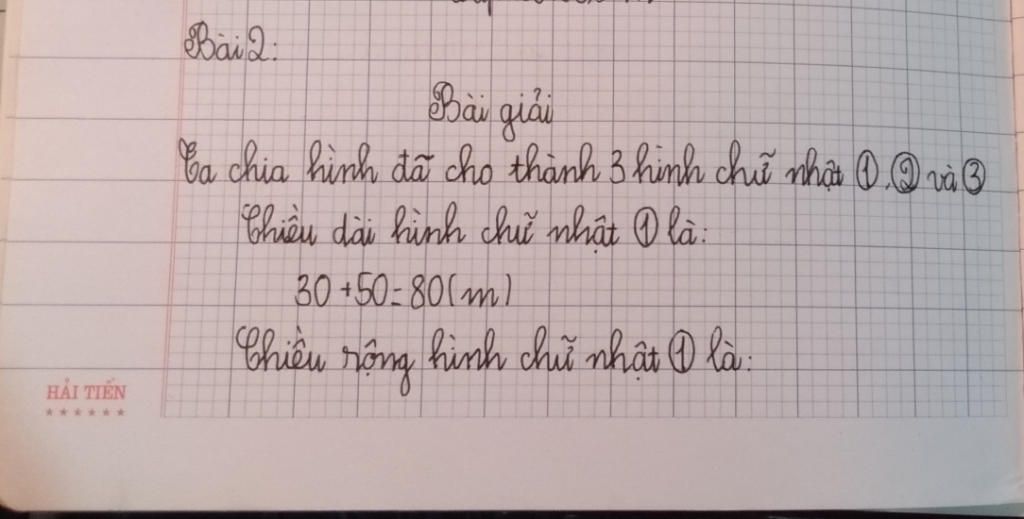 Bài 2:
Bài giải
Ta chia hình đã cho thành 3 hình chữ nhật ①, ② và ③
Chiều dài hình chữ nhật ① là:
30 + 50 = 80 (m)
Chiều rộng hình chữ nhật ① là:
HẢI TIẾN